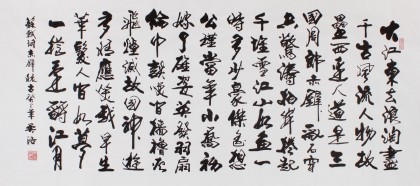 大江東去浪淘盡
千古風流人物故
壘西邊人道是三
國周郎赤壁亂石穿
空驚濤拍岸捲起
千堆雪江山如畫一
時多少豪傑遙想
公瑾當年小喬初
嫁了雄姿英發羽扇
綸巾談笑間檣櫓
飛煙滅故國神遊
多情應笑我早生
華髮人間如夢
一樽還酹江月
蘇軾詞赤壁懷古